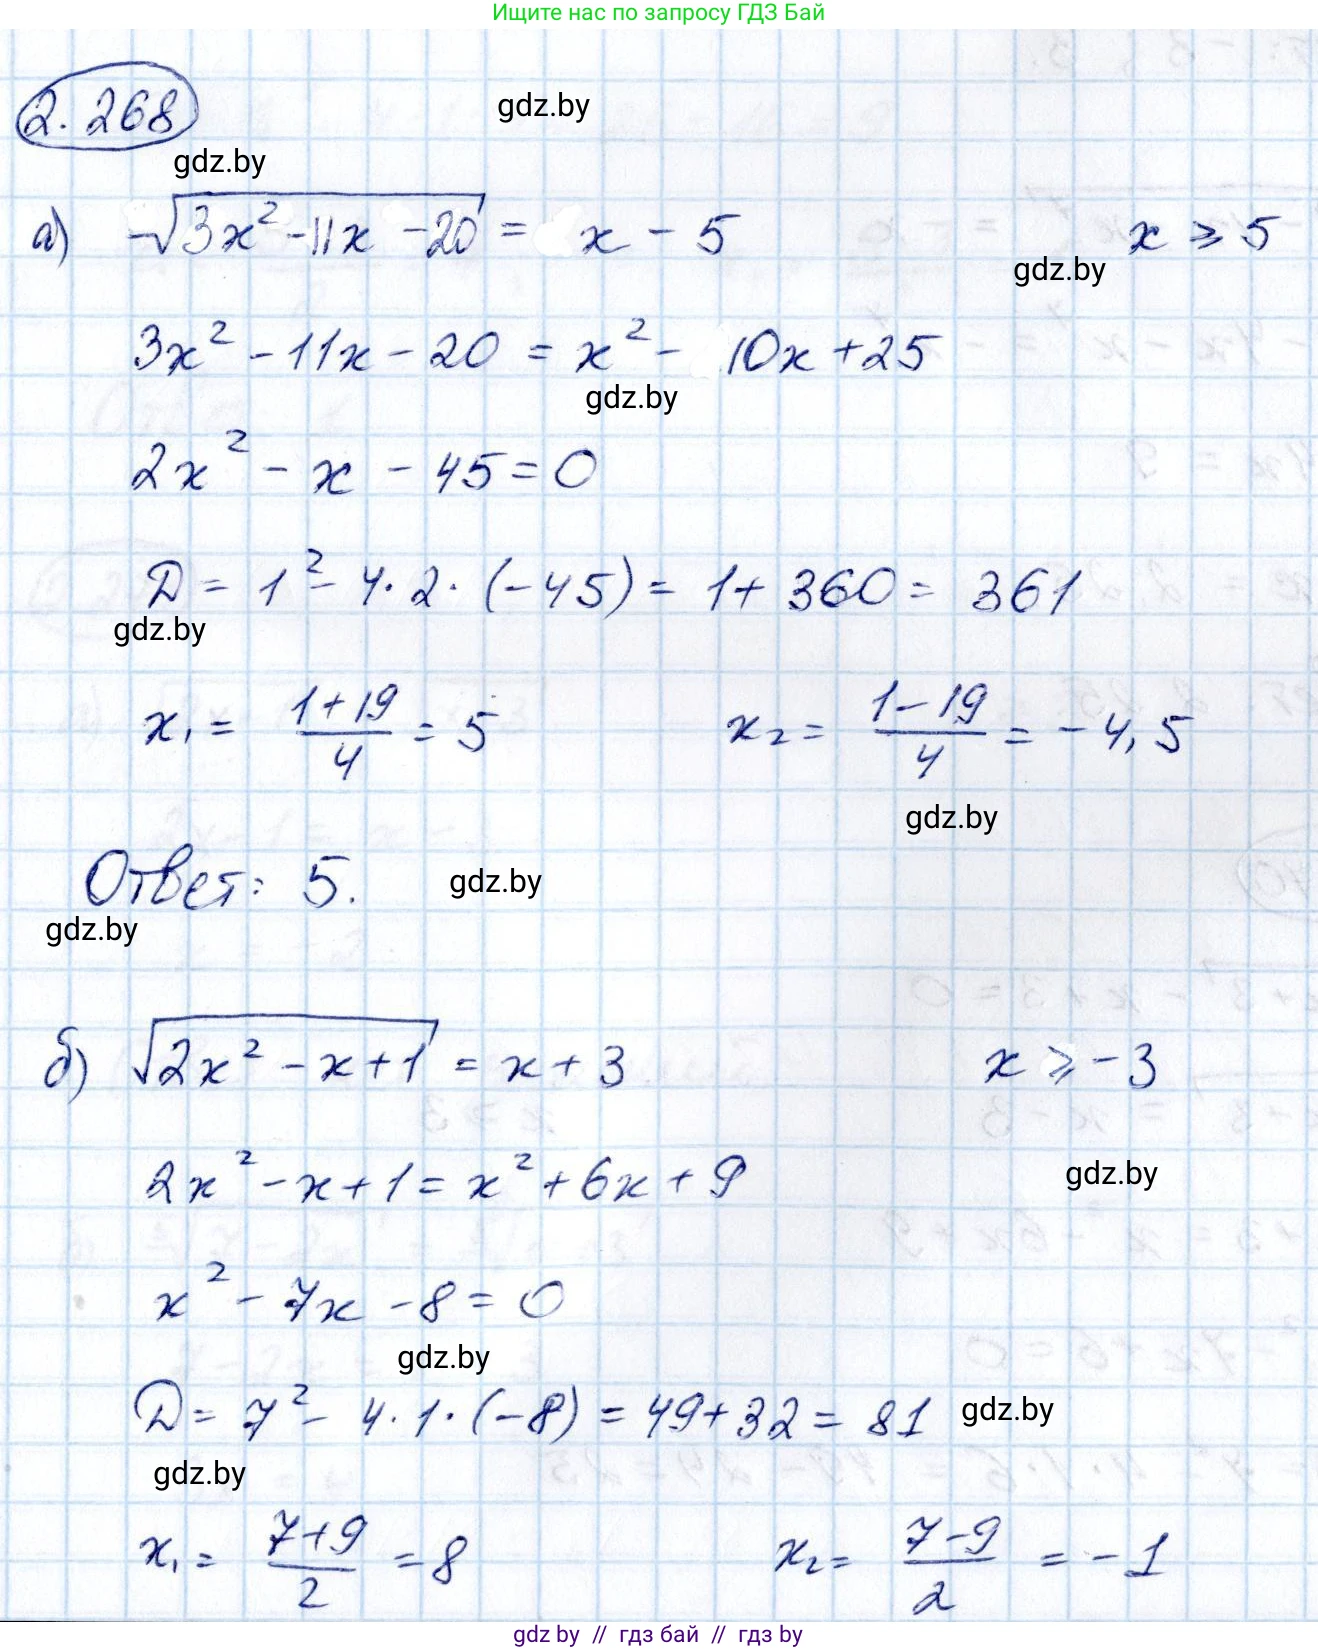 Ищите нас по запросу ГДЗ Бай
2.268
gdz.by
gdz.by
а) -√(3x² - 11x - 20) = x - 5    x ⩾ 5
gdz.by
3x² - 11x - 20 = x² - 10x + 25
gdz.by
2x² - x - 45 = 0
D = 1² - 4 · 2 · (-45) = 1 + 360 = 361
gdz.by
x₁ = (1+19)/4 = 5    x₂ = (1-19)/4 = -4,5
gdz.by
Ответ: 5.
gdz.by
gdz.by
б) √(2x² - x + 1) = x + 3    x ⩾ -3
2x² - x + 1 = x² + 6x + 9
gdz.by
x² - 7x - 8 = 0
gdz.by
D = 7² - 4 · 1 · (-8) = 49 + 32 = 81
gdz.by
gdz.by
x₁ = (7+9)/2 = 8    x₂ = (7-9)/2 = -1
gdz by // гдз бай // гдз by